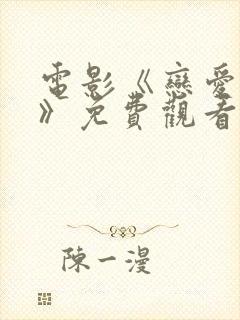 電影《戀愛
》免費觀看
陳一漫